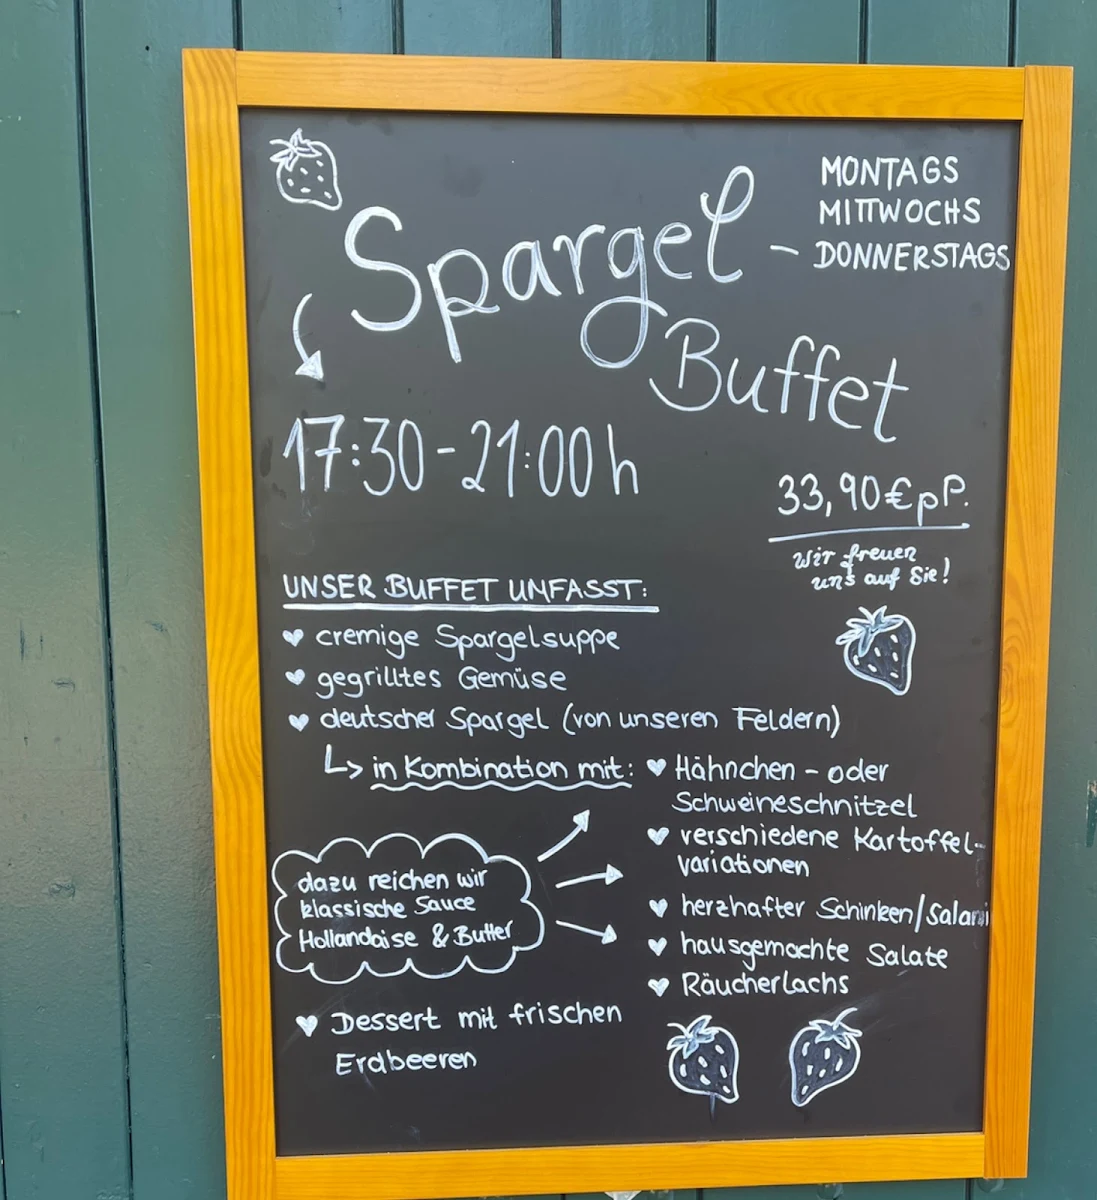 MONTAGS
MITTWOCHS
Spargel – DONNERSTAGS
Buffet
17:30-21:00h
33,90€ pP.
wir freuen
uns auf Sie!
UNSER BUFFET UMFASST:
cremige Spargelsuppe
gegrilltes Gemüse
deutscher Spargel (von unseren Feldern)
in Kombination mit:
Hähnchen- oder
Schweineschnitzel
verschiedene Kartoffel-
variationen
herzhafter Schinken/Salami
hausgemachte Salate
Räucherlachs
dazu reichen wir
klassische Sauce
Hollandaise & Butter
Dessert mit frischen
Erdbeeren